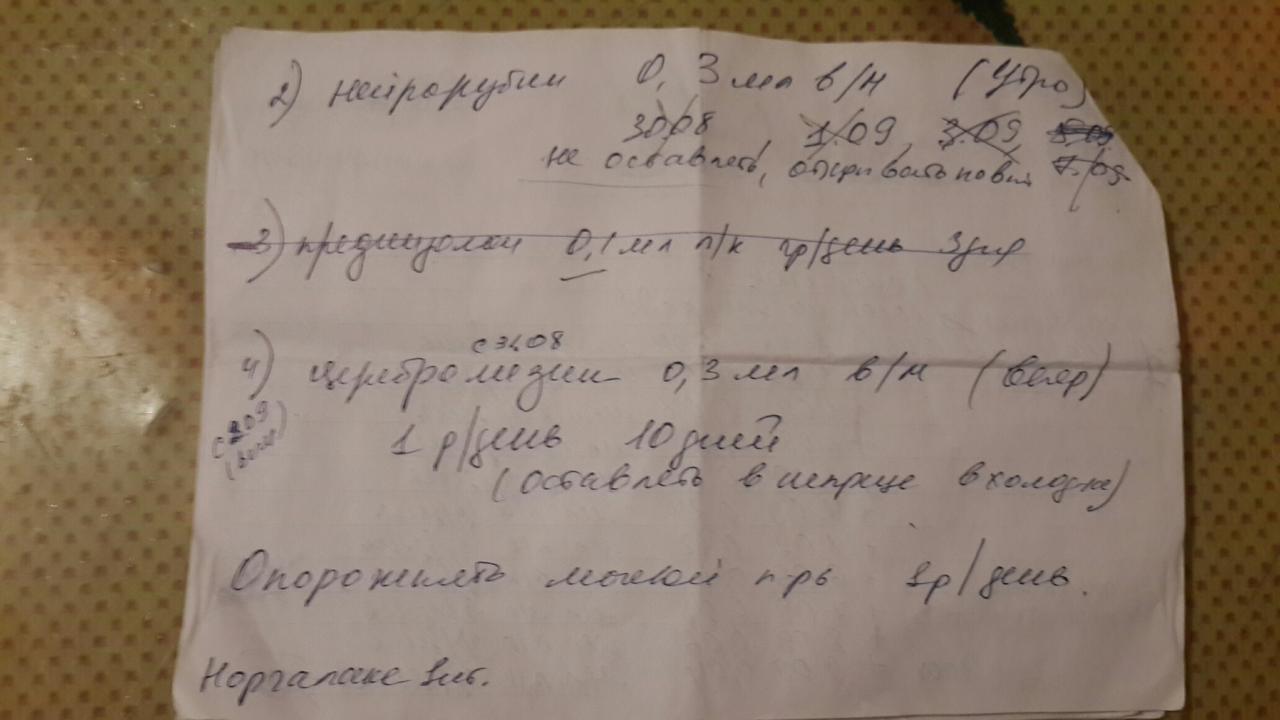 2) нейрорубин 0,3 мл в/м (Утро)
30.08, 1.09, 3.09
не оставлять, открывать новый 7.09
3) преднизолон 0,1 мл п/к 1р/день 3 дня
с 31.08
4) церебролизин 0,3 мл в/м (вечер)
(вечер)
1 р/день 10 дней
(оставлять в шприце в холод-ке)
Опорожнять мочевой п-рь 1р/день.
Норгалакс 1шт.